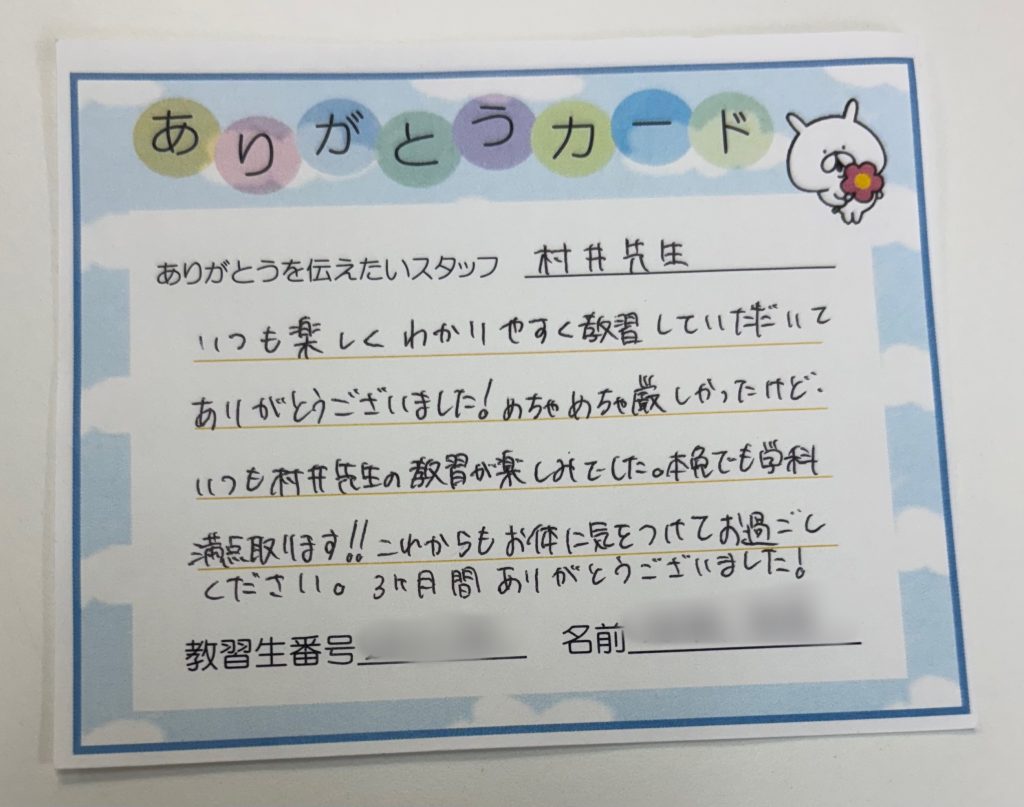 ありがとうカード
ありがとうを伝えたいスタッフ 村井先生
いつも楽しくわかりやすく教習していただいて
ありがとうございました!めちゃめちゃ厳しかったけど、
いつも村井先生の教習が楽しみでした。本免でも学科
満点取ります!!これからもお体に気をつけてお過ごし
ください。3ヶ月間ありがとうございました!
教習生番号
名前